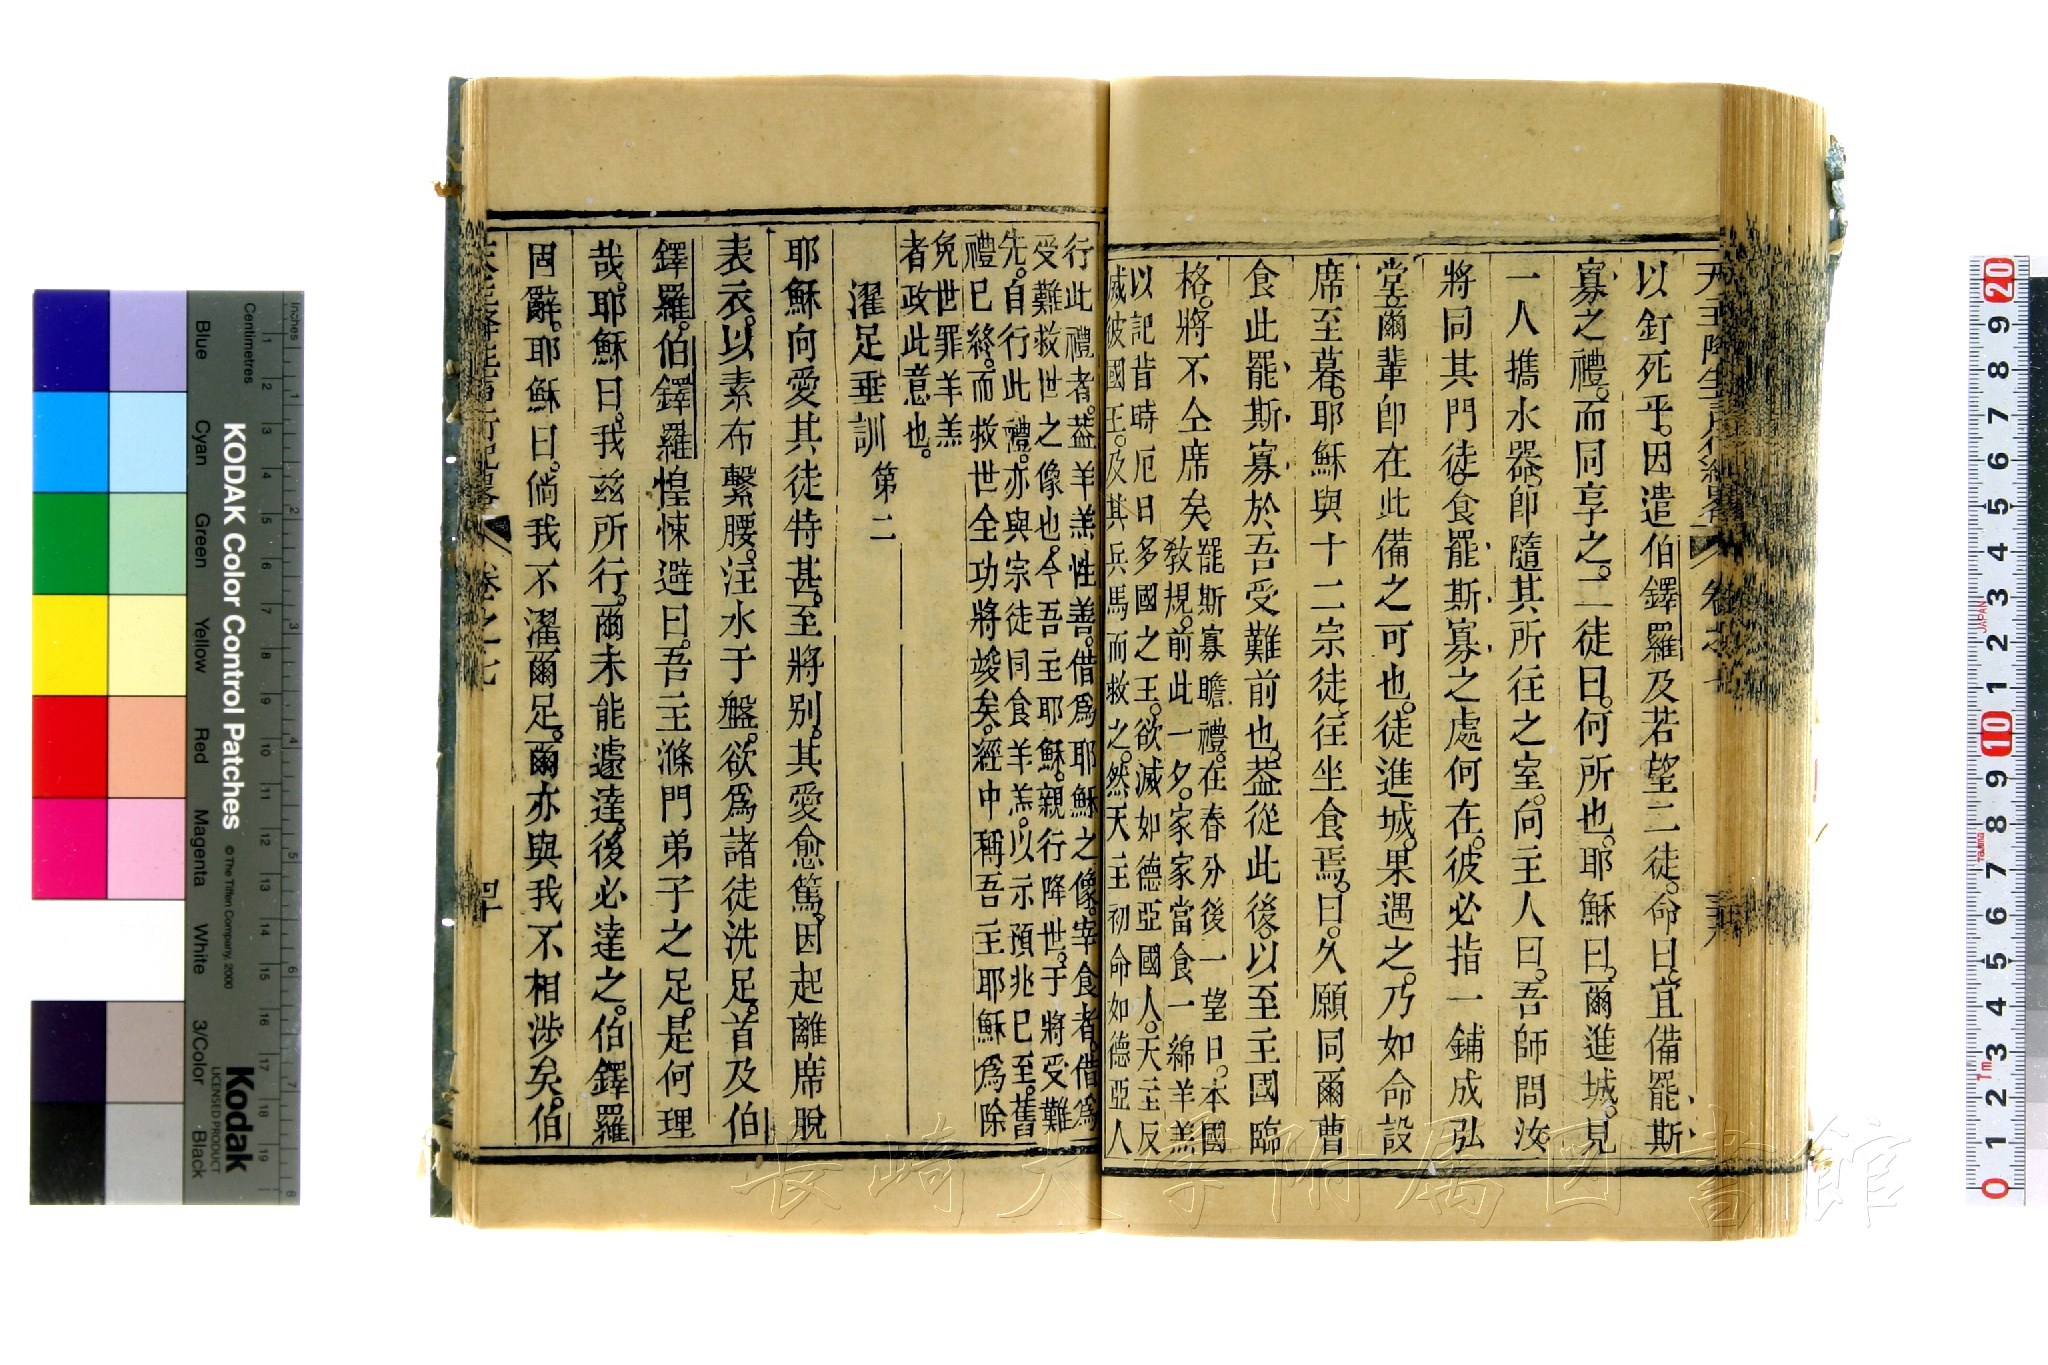 天主降生言行紀畧 卷之七
以釘死乎。因遣伯鐸羅及若望二徒。命曰。宜備罷斯
寡之禮。而同享之。二徒曰。何所也。耶穌曰。爾進城。見
一人攜水器。卽隨其所往之室。向主人曰。吾師問汝。
將同其門徒。食罷斯寡之處何在。彼必指一鋪成弘
堂。爾輩卽在此備之可也。徒進城。果遇之。乃如命設
席至暮。耶穌與十二宗徒往坐食焉。曰。久願同爾曹
食此罷斯寡於吾受難前也。葢從此後。以至主國臨
格。將不仝席矣。
罷斯寡瞻禮。在春分後一望日。本國
敎規。前此一夕。家家當食一綿羊羔
以記昔時厄日多國之王。欲滅如德亞國人。天主反
滅彼國王。及其兵馬而救之。然天主初命如德亞人
行此禮者。葢羊羔性善。借爲耶穌之像。宰食者。借爲
受難救世之像也。今吾主耶穌。親行降世。于將受難
先。自行此禮。亦與宗徒同食羊羔。以示預兆已至。舊
禮已終。而救世全功將竣矣。經中稱吾主耶穌爲除
免世罪羊羔
者政此意也。
濯足垂訓 第二
耶穌向愛其徒特甚。至將別。其愛愈篤。因起離席脫
表衣。以素布繫腰。注水于盤。欲爲諸徒洗足。首及伯
鐸羅。伯鐸羅惶悚避曰。吾主滌門弟子之足。是何理
哉。耶穌曰。我茲所行。爾未能遽達。後必達之。伯鐸羅
固辭。耶穌曰。倘我不濯爾足。爾亦與我不相涉矣。伯
天主降生言行紀畧 卷之七 四十
KODAK Color Control Patches
© The Tiffen Company, 2000
Kodak
LICENSED PRODUCT
Inches
Centimetres
Blue
Cyan
Green
Yellow
Red
Magenta
White
3/Color
Black
長崎大学附属図書館
JAPAN